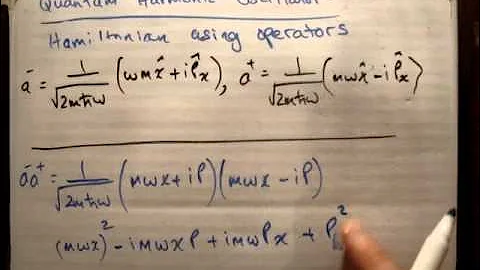 Quantum Harmonic Oscillator
Hamiltonian using operators
a⁻ = 1/√(2mħω) (ωmx̂ + ip̂ₓ), a⁺ = 1/√(2mħω) (mωx̂ - ip̂ₓ)
a⁻a⁺ = 1/√(2mħω) (mωx + iP)(mωx - iP)
(mωx)² - imωxP + imωPx + P²